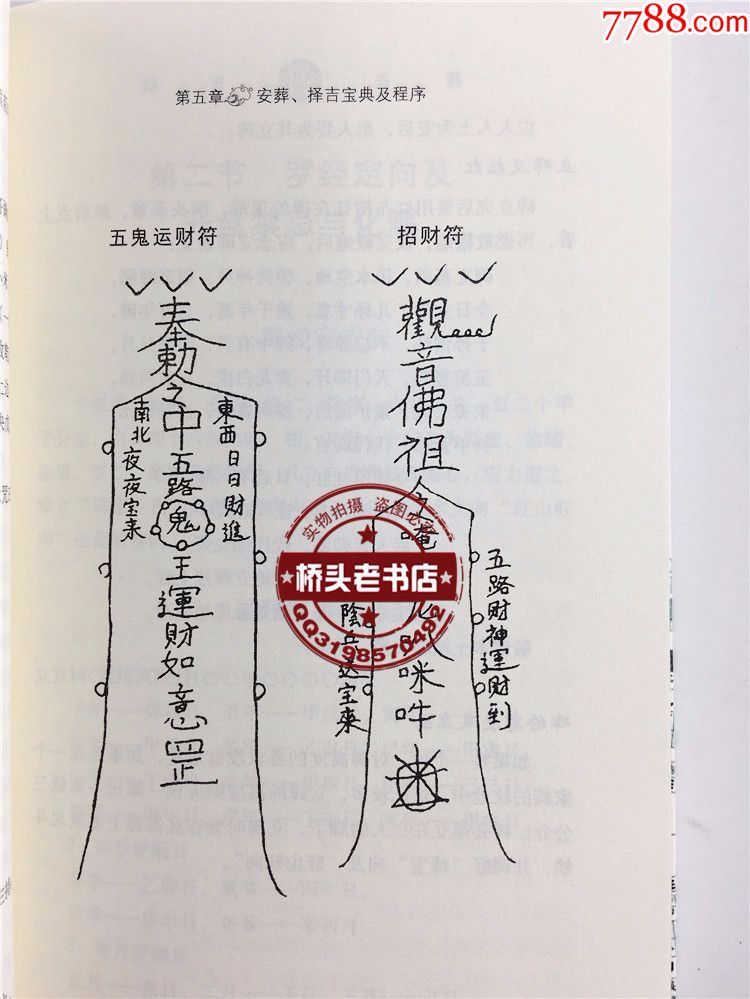 7788.com
第五章 安葬、择吉宝典及程序
五鬼运财符
招财符
奉勅令中五路鬼王運財如意罡
東西日日財進
南北夜夜宝来
觀音佛祖
唵
咪吽
五路財神運財到
陰兵送宝來
实物拍摄 盗图必究
桥头老书店
QQ3198570492